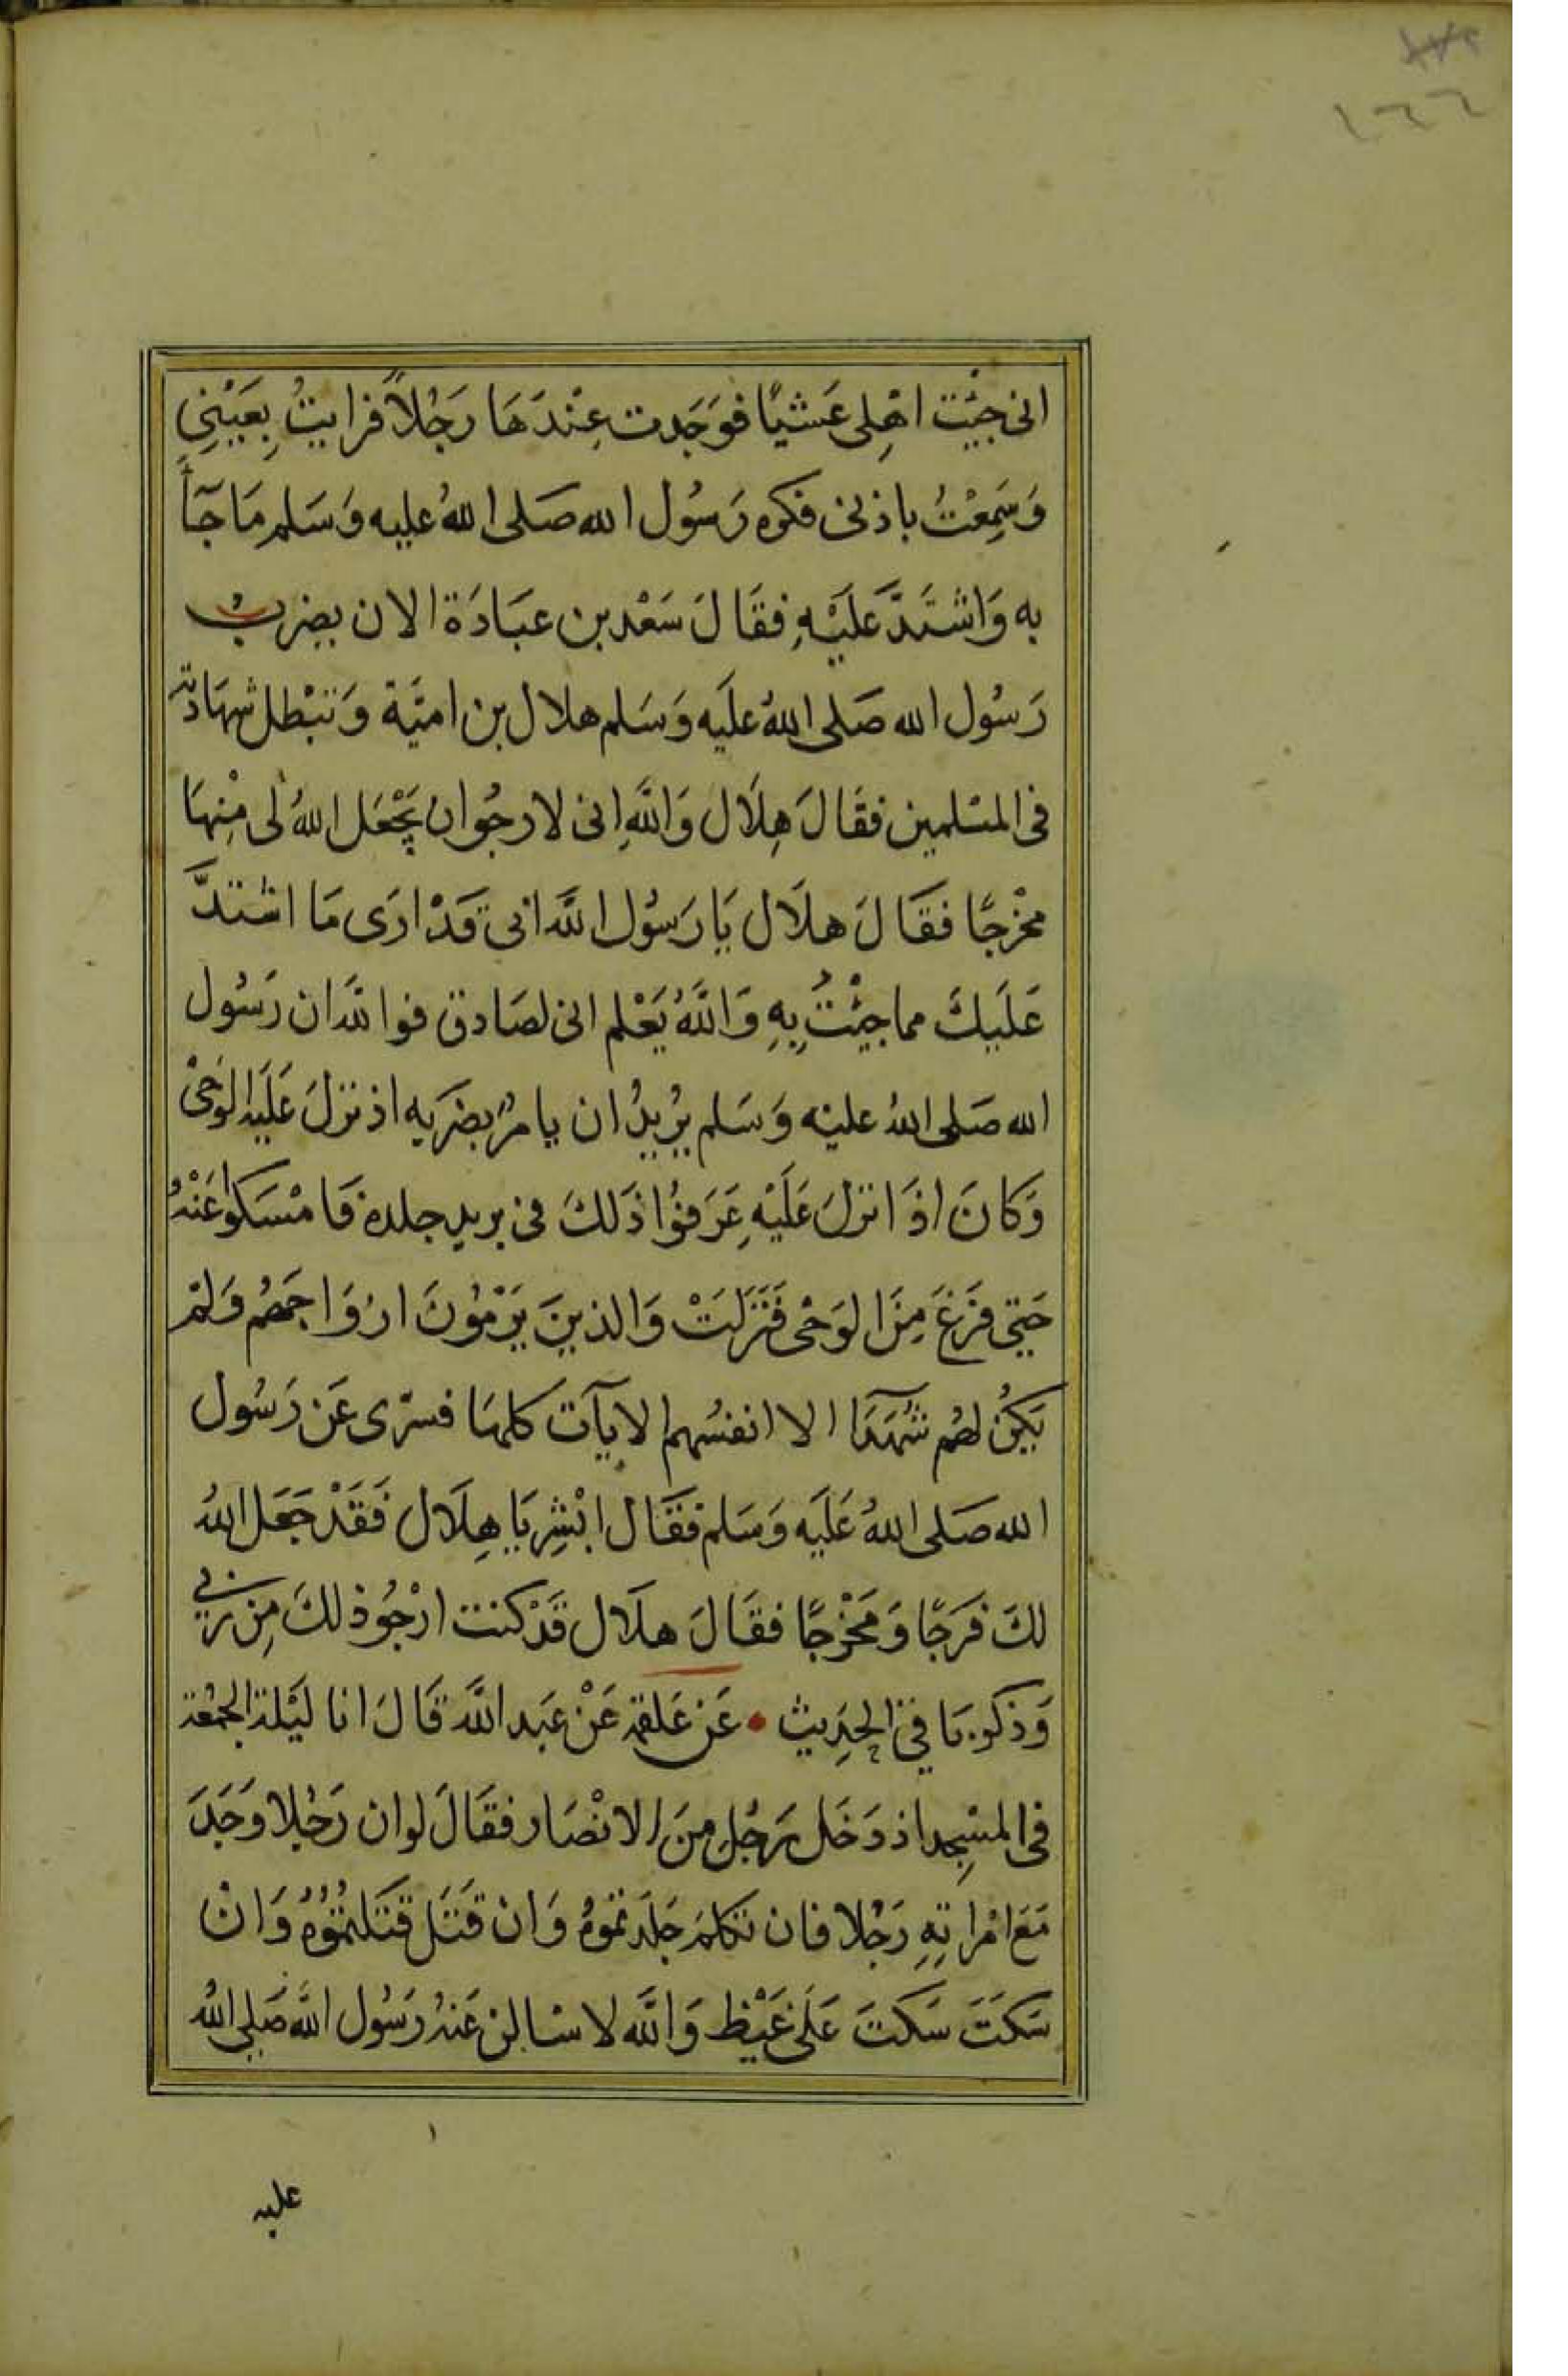 ١٦٦
انى جِيْت اهْلِى عَشيًا فوَجَدت عِنْدَهَا رَجُلاً فرايتُ بِعَيْنِي
وَسَمِعْتُ باذنى فكره رَسُول الله صَلى اللهُ عليه وَسَلم مَا جَآءَ
به وَاشتَدَّ عَلَيْهِ فقَالَ سَعْد بن عبَادَة الان يضرِبُ
رَسُول الله صَلى اللهُ علَيه وَسَلم هلال بن اميَّة وَتبْطل شهَادته
فى المسْلمين فقَالَ هِلَال وَاللَّهِ انى لارجُو ان يَجْعَل اللهُ لى مِنْهَا
مخْرجًا فقَالَ هلَال يَا رَسُول اللَّه انى قَدْ ارَى مَا اشتدَّ
عَلَيكَ مما جِيْتُ بِهِ وَاللَّهُ يَعْلم انى لصَادق فوالله ان رَسُول
الله صَلى اللهُ عليْه وَسَلم يُرِيدُ ان يامُرَ بضَربِه اذ نزلَ عَلَيه الوَحْىُ
وَكانَ اذَا نزلَ عَلَيْهِ عَرَفوُا ذَلكَ فى تربد جلده فَامْسَكوا عَنْهُ
حَتي فَرَغَ مِنَ الوَحْى فَنَزَلَتْ وَالذينَ يَرْمُوْنَ ازْوَاجَهُم وَلمْ
يَكُنْ لهُم شُهَدَآ الا انفسُهم الايآت كلهَا فسرّى عَن رَسُول
الله صَلى اللهُ عَلَيه وَسَلم فقَال ابْشِر يَا هِلَال فَقَدْ جَعَل اللهُ
لكَ فرَجًا وَمَخْرجًا فقَالَ هلَال قَدْ كنت ارْجُو ذلكَ مِن ربي
وَذكر باقي الحدِيث • عَن عَلقمة عَنْ عَبد اللَّه قَالَ انا ليْلة الجمْعَة
فى المسْجِد اذ دَخَل رَجُل مِنَ الانْصَار فقَالَ لو ان رَجُلا وَجَدَ
مَعَ امْراتِهِ رَجُلا فان تكلمَ جَلَدتموُهُ وَان قتَلَ قتَلتمُوُهُ وَانْ
سَكتَ سَكتَ عَلَى غَيْظ وَاللَّه لاسْالن عَنهُ رَسُول اللَّه صَلى اللهُ
عليه